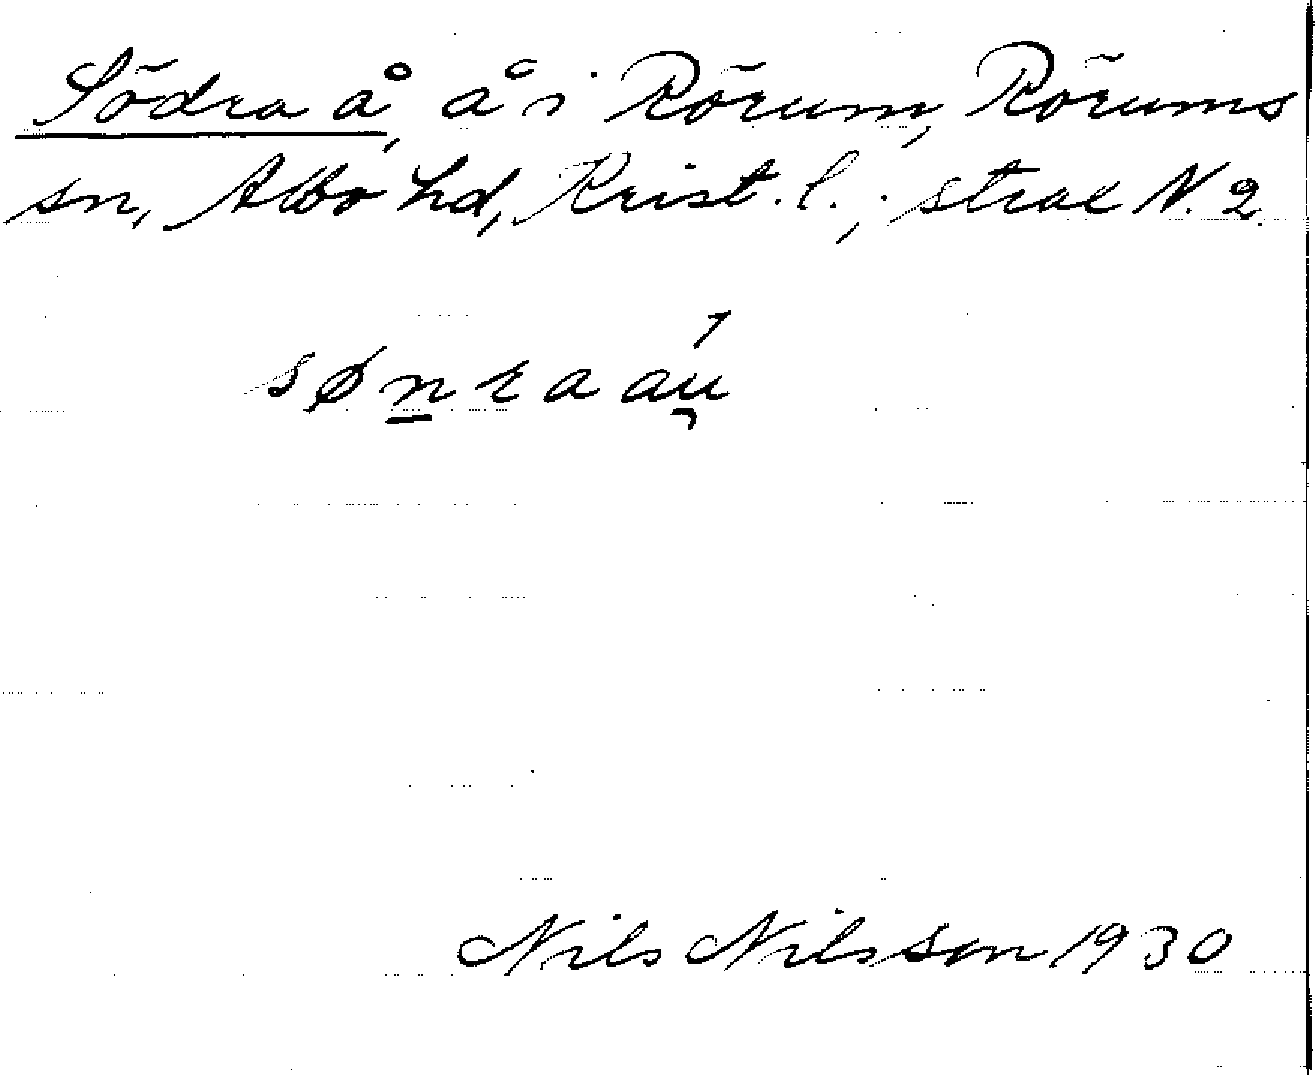 Södra å, å i Rörum, Rörums
sn, Albo hd, Krist. l.; strax N. 2.
søn̲raaú̯
Nils Nilsson 1930